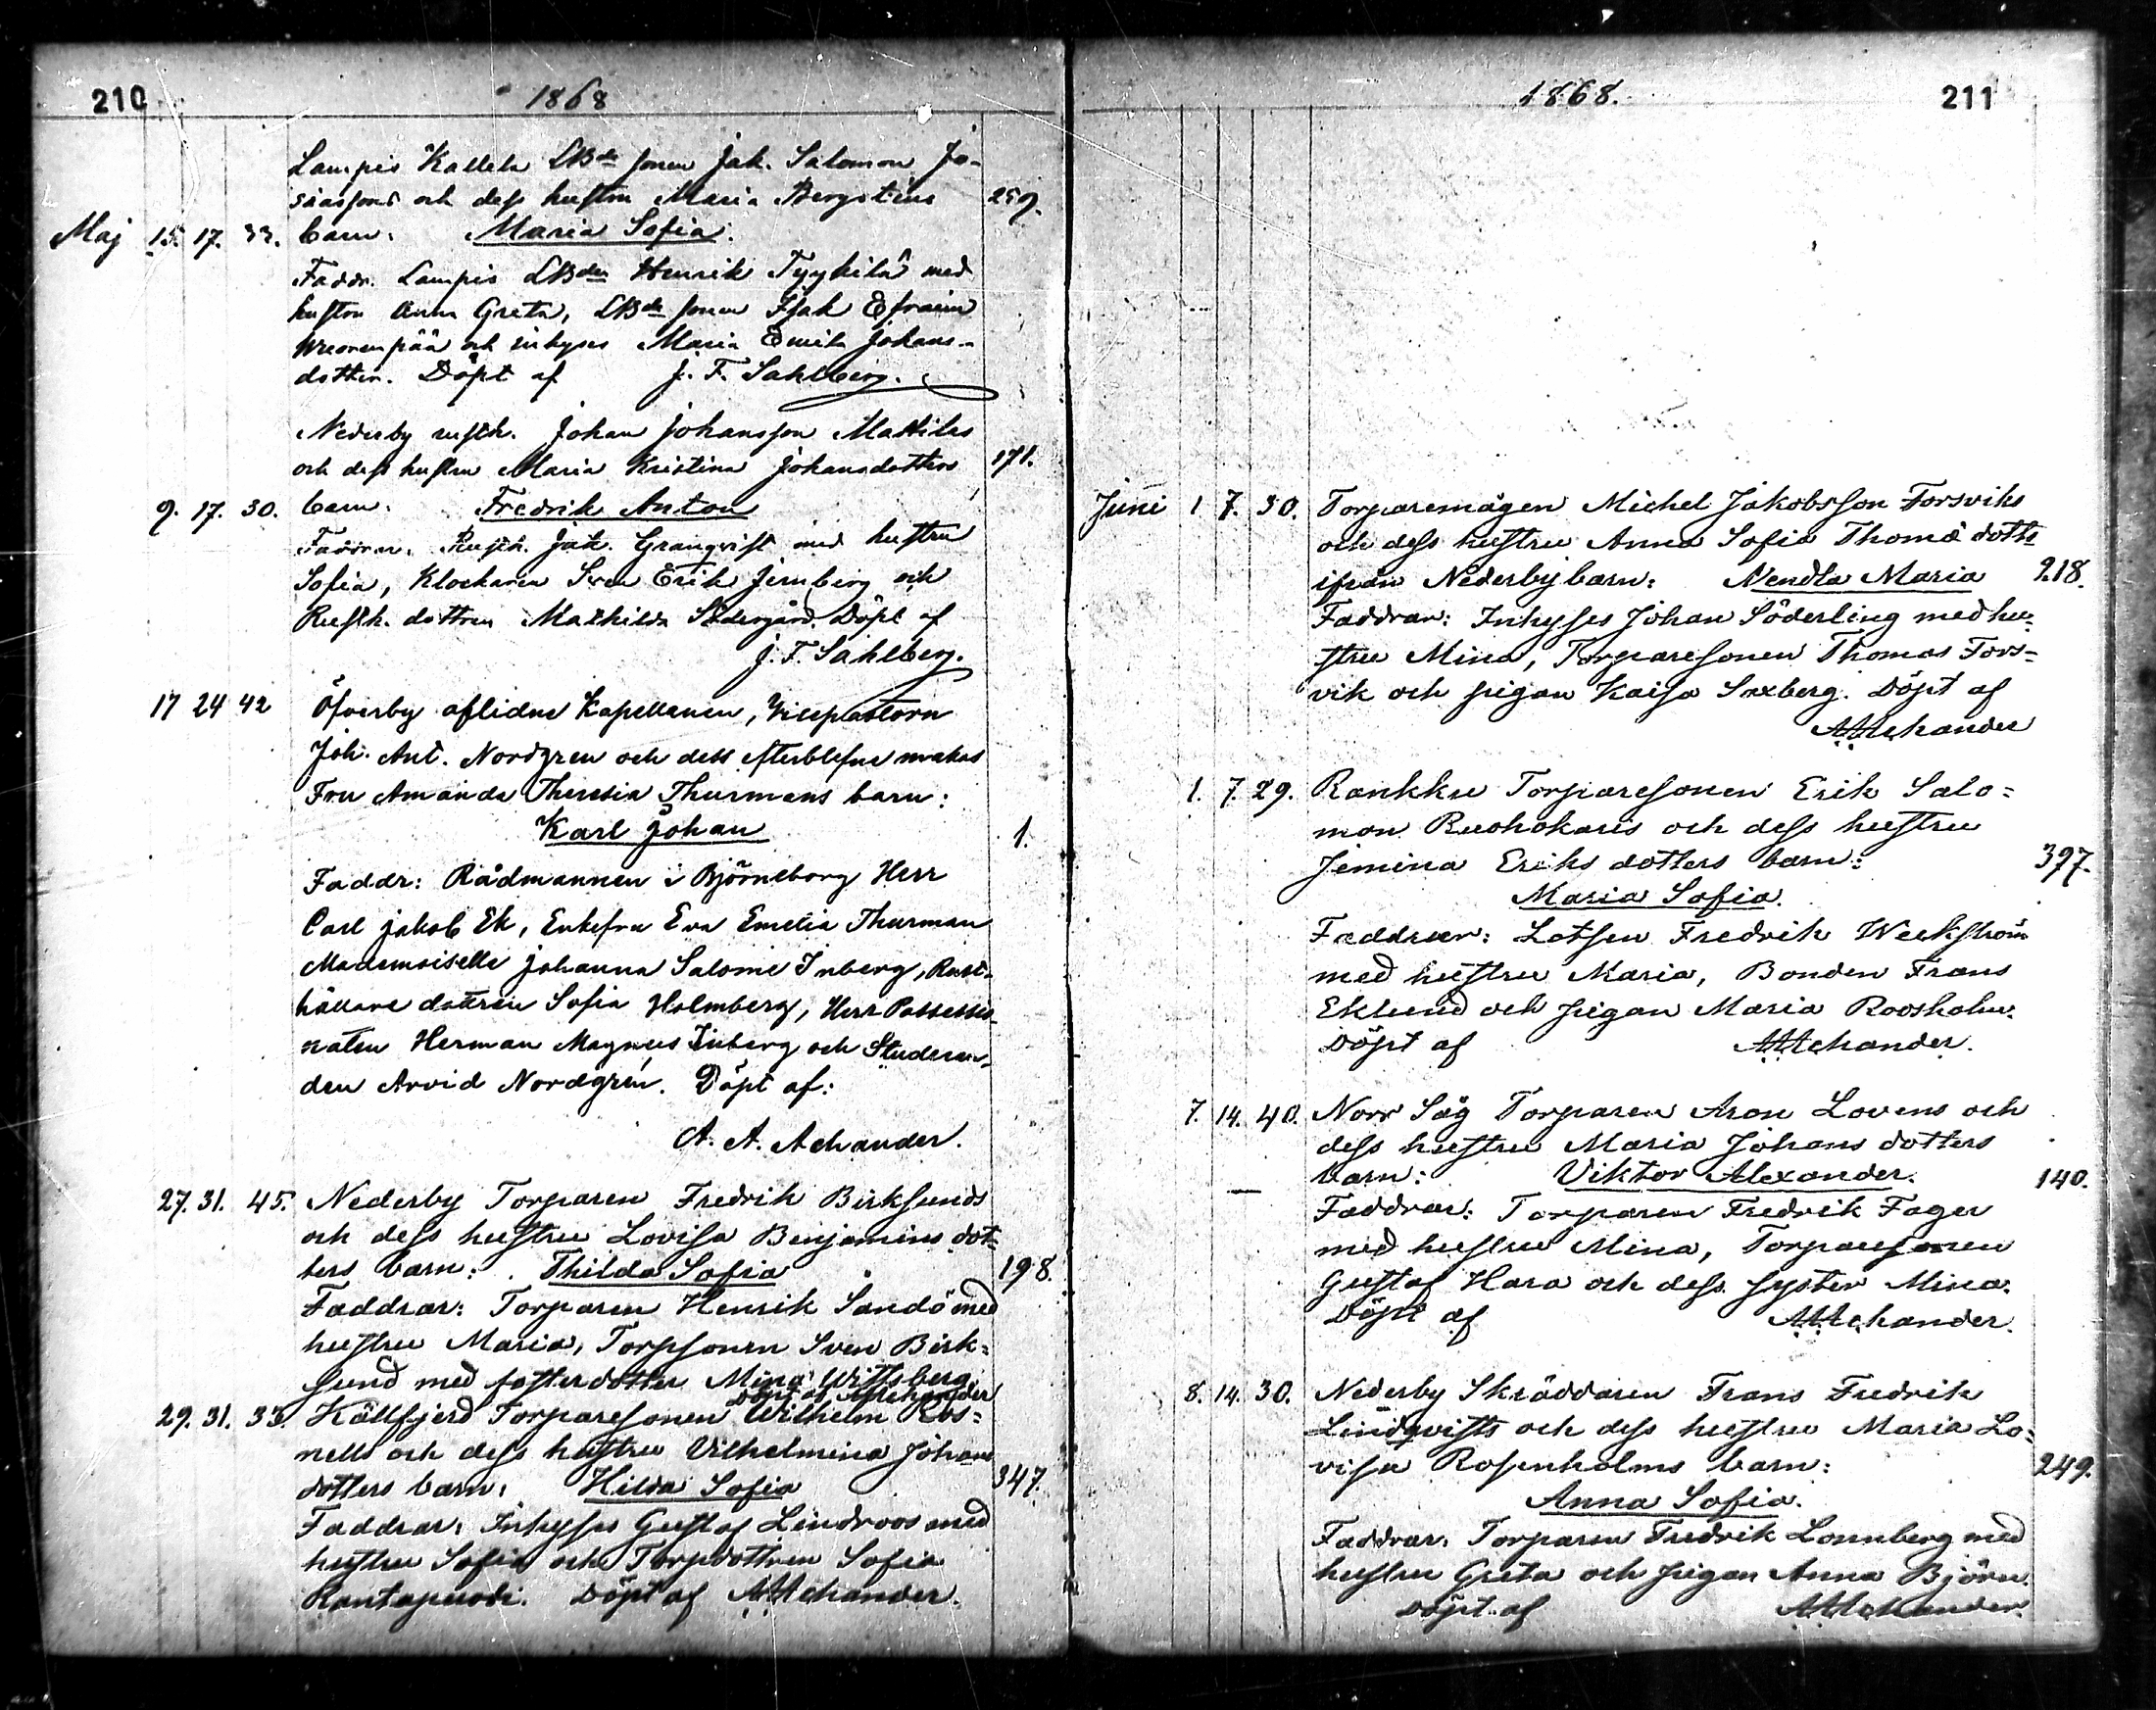 210
1868
Lampis Kallela LBde sonen Jak. Salomon Jo-
siassons och dess hustru Maria Bergstens
259.
Maj 15. 17. 33. barn: Maria Sofia.
Faddr. Lampis LBden Henrik Tyykilä med
hustru Anna Greta, LBde sonen Isak Efraim
och inhyses Maria Emila Johans-
dotter. Döpt af J. F. Sahlberg.
Nederby rusth. Johan Johansson Mattilas
och dess hustru Maria Kristina Johansdotters
171.
9. 17. 30. barn: Fredrik Anton
Faddrar. Rusth. Jak. Granqvist med hustru
Sofia, Klockaren Sven Erik Jernberg och
Rusth. dottren Mathilda Södergård. Döpt af
J. F. Sahlberg.
17 24 42 Öfverby aflidne Kapellanen, Vicepastorn
Joh. Ant. Nordgren och dess efterblefne makas
Fru Amanda Theresia Thurmans barn:
Karl Johan
1.
Faddr: Rådmannen i Björneborg Herr
Carl Jakob Ek, Enkefru Eva Emelia Thurman
Mademoiselle Johanna Salome Inberg, Rust-
hållare dottren Sofia Holmberg, Herr Possessio-
naten Herman Magnus Inberg och Studeran-
den Arvid Nordgren. Döpt af:
A. A. Achander.
27. 31. 45. Nederby Torparen Fredrik Birksunds
och dess hustru Lovisa Benjamins dot-
ters barn: Thilda Sofia
198.
Faddrar: Torparen Henrik Sandö med
hustru Maria, Torpsonen Sven Birk-
sund med fosterdotter Mina Wittsberg.
Döpt af AAchander
29. 31. 33. Källfjerd Torparesonen Wilhelm Ros-
nells och dess hustru Vilhelmina Johans
dotters barn: Hilda Sofia
347.
Faddrar: Inhyses Gustaf Lindroos med
hustru Sofia och Torpdottren Sofia
Rantapuodi. Döpt af AAchander.
1868.
211
Juni 1 7. 30. Torparemågen Michel Jakobsson Forsviks
och dess hustru Anna Sofia Thomä dotts
ifrån Nederby barn: Vendla Maria
218.
Faddrar: Inhyses Johan Söderling med hu-
stru Mina, Torparesonen Thomas Fors-
vik och pigan Kaisa Saxberg. Döpt af
AAchander
1. 7. 29. Rankku Torparesonen Erik Salo-
mon Ruohokaris och dess hustru
Jemina Eriks dotters barn:
397.
Maria Sofia.
Faddrar: Lotsen Fredrik Weckström
med hustru Maria, Bonden Frans
Eklund och pigan Maria Roosholm.
Döpt af AAchander.
7. 14. 40. Norr Såg Torparen Aron Lovens och
dess hustru Maria Johans dotters
barn: Viktor Alexander.
140.
Faddrar: Torparen Fredrik Fager
med hustru Mina, Torparesonen
Gustaf Hara och dess syster Mina.
Döpt af AAchander.
8. 14. 30. Nederby Skräddaren Frans Fredrik
Lindqvists och dess hustru Maria Lo-
visa Rosenholms barn:
249.
Anna Sofia.
Faddrar. Torparen Fredrik Lonnberg med
hustru Greta och pigan Anna Björn.
Döpt af AAchander.